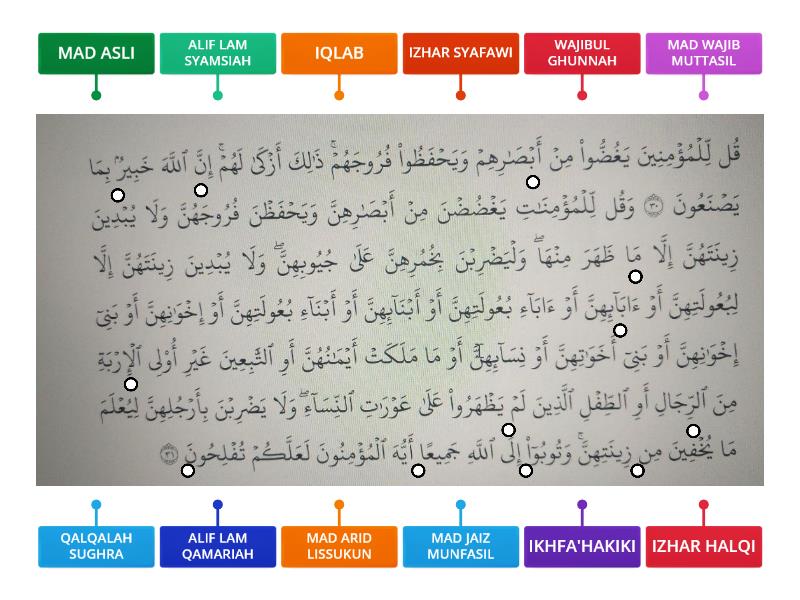 MAD ASLI
ALIF LAM
SYAMSIAH
IQLAB
IZHAR SYAFAWI
WAJIBUL
GHUNNAH
MAD WAJIB
MUTTASIL
قُل لِّلْمُؤْمِنِينَ يَغُضُّوا۟ مِنْ أَبْصَٰرِهِمْ وَيَحْفَظُوا۟ فُرُوجَهُمْ ۚ ذَٰلِكَ أَزْكَىٰ لَهُمْ ۗ إِنَّ ٱللَّهَ خَبِيرٌۢ بِمَا
يَصْنَعُونَ ٣٠ وَقُل لِّلْمُؤْمِنَٰتِ يَغْضُضْنَ مِنْ أَبْصَٰرِهِنَّ وَيَحْفَظْنَ فُرُوجَهُنَّ وَلَا يُبْدِينَ
زِينَتَهُنَّ إِلَّا مَا ظَهَرَ مِنْهَا ۖ وَلْيَضْرِبْنَ بِخُمُرِهِنَّ عَلَىٰ جُيُوبِهِنَّ ۖ وَلَا يُبْدِينَ زِينَتَهُنَّ إِلَّا
لِبُعُولَتِهِنَّ أَوْ ءَابَآئِهِنَّ أَوْ ءَابَآءِ بُعُولَتِهِنَّ أَوْ أَبْنَآئِهِنَّ أَوْ أَبْنَآءِ بُعُولَتِهِنَّ أَوْ إِخْوَٰنِهِنَّ أَوْ بَنِىٓ
إِخْوَٰنِهِنَّ أَوْ بَنِىٓ أَخَوَٰتِهِنَّ أَوْ نِسَآئِهِنَّ أَوْ مَا مَلَكَتْ أَيْمَٰنُهُنَّ أَوِ ٱلتَّٰبِعِينَ غَيْرِ أُو۟لِى ٱلْإِرْبَةِ
مِنَ ٱلرِّجَالِ أَوِ ٱلطِّفْلِ ٱلَّذِينَ لَمْ يَظْهَرُوا۟ عَلَىٰ عَوْرَٰتِ ٱلنِّسَآءِ ۖ وَلَا يَضْرِبْنَ بِأَرْجُلِهِنَّ لِيُعْلَمَ
مَا يُخْفِينَ مِن زِينَتِهِنَّ ۚ وَتُوبُوٓا۟ إِلَى ٱللَّهِ جَمِيعًا أَيُّهَ ٱلْمُؤْمِنُونَ لَعَلَّكُمْ تُفْلِحُونَ ٣١
QALQALAH
SUGHRA
ALIF LAM
QAMARIAH
MAD ARID
LISSUKUN
MAD JAIZ
MUNFASIL
IKHFA'HAKIKI
IZHAR HALQI